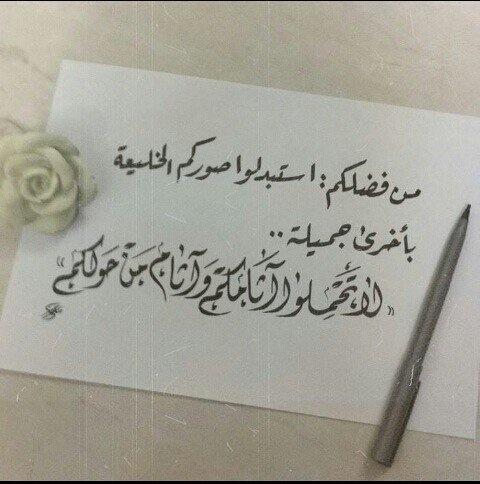 من فضلكم: استبدلوا صوركم الخليعة
بأخرى جميلة..
«لا تَحْمِلوا آثَامَكُمْ وَآثامَ مَنْ حَولكُمْ»